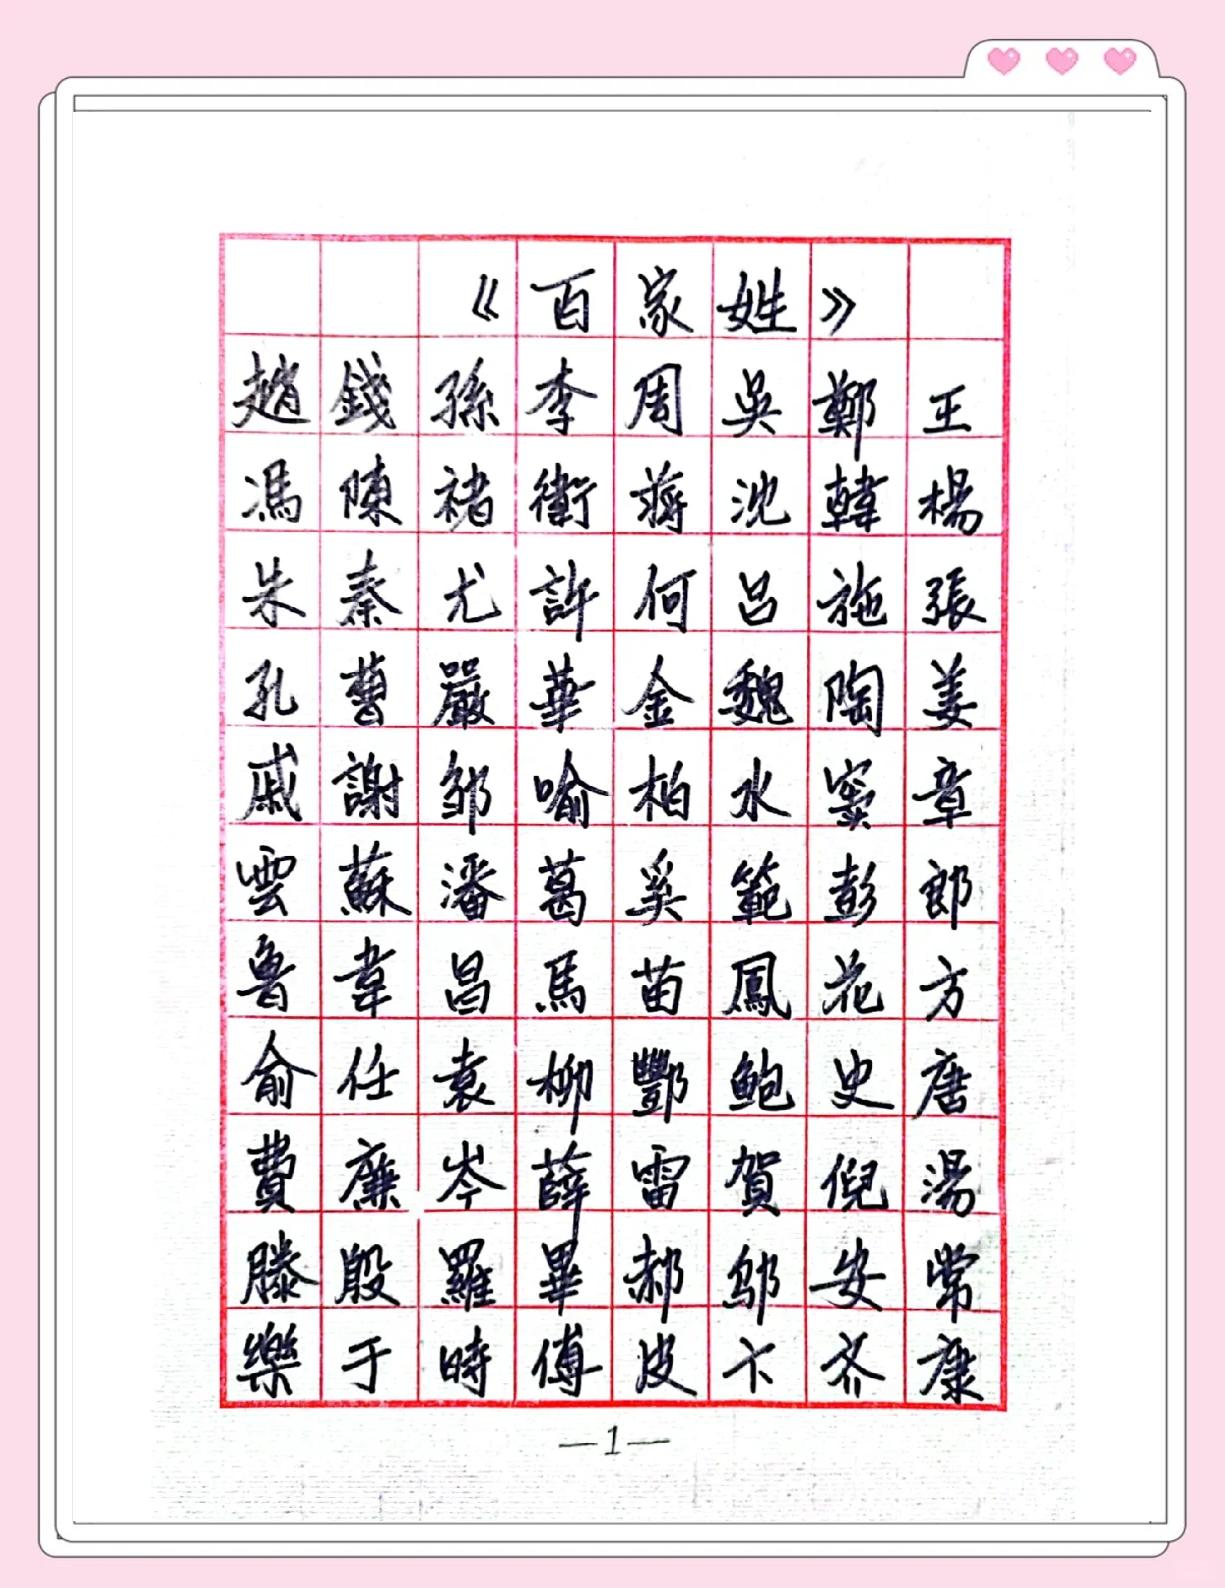 《百家姓》
趙錢孫李周吳鄭王
馮陳褚衛蔣沈韓楊
朱秦尤許何呂施張
孔曹嚴華金魏陶姜
戚謝鄒喻柏水竇章
雲蘇潘葛奚範彭郎
魯韋昌馬苗鳳花方
俞任袁柳酆鮑史唐
費廉岑薛雷賀倪湯
滕殷羅畢郝鄔安常
樂于時傅皮卞齊康
—1—